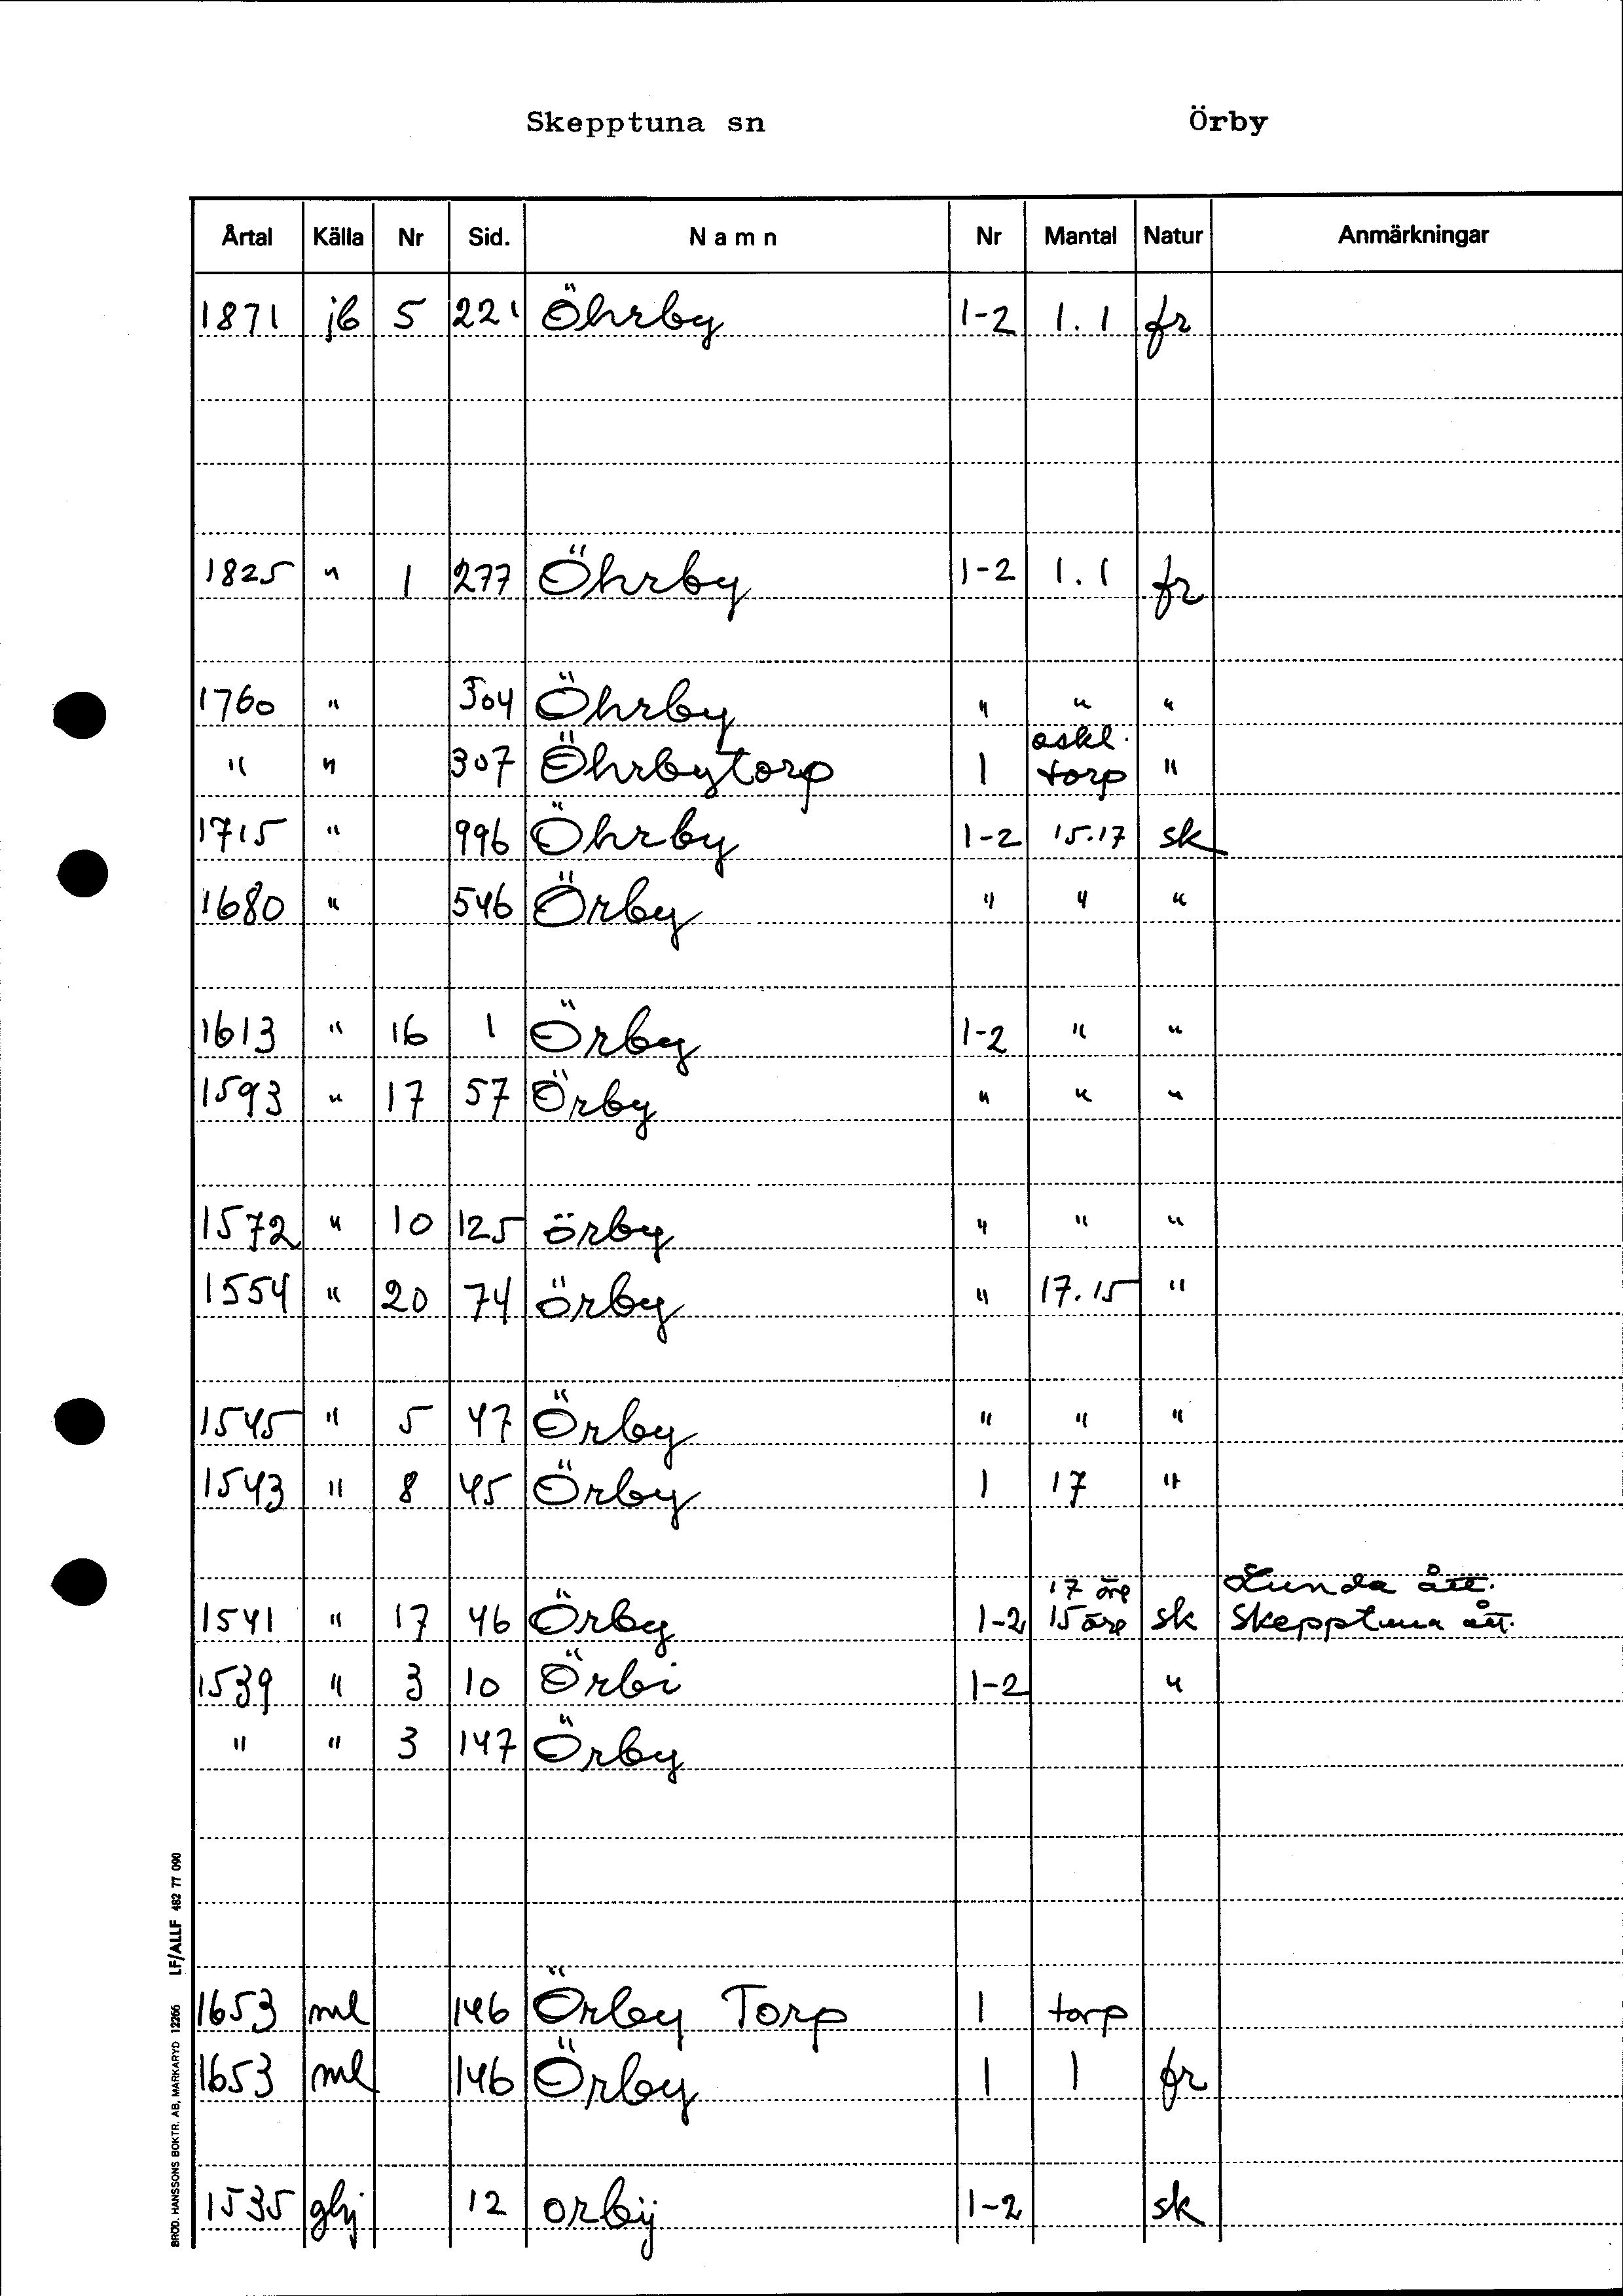 Skepptuna sn Örby
Årtal Källa Nr Sid. Namn Nr Mantal Natur Anmärkningar
1871 jb 5 221 Öhrby 1-2 1.1 fr
1825 " 1 277 Öhrby 1-2 1.1 fr
1760 " 304 Öhrby " " "
" " 307 Öhrbytorp 1 oskl. torp "
1715 " 996 Öhrby 1-2 15.17 sk
1680 " 546 Örby " " "
1613 " 16 1 Örby 1-2 " "
1593 " 17 57 Örby " " "
1572 " 10 125 örby " " "
1554 " 20 74 örby " 17.15 "
1545 " 5 47 Örby " " "
1543 " 8 45 Örby 1 17 "
17 öre Lunda ått.
1541 " 17 46 Örby 1-2 15 öre sk Skepptuna ått.
1539 " 3 10 Örbi 1-2 "
" " 3 147 Örby
1653 ml 146 Örby Torp 1 torp
1653 ml 146 Örby 1 1 fr
1535 ghj 12 orbij 1-2 sk
BRÖD. HANSSONS BOKTR. AB, MARKARYD 12266 LF/ALLF 482 77 090